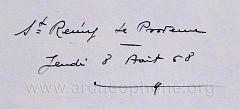 St Rémy de Provence
Jeudi 8 Août 68
www.archeophile.org